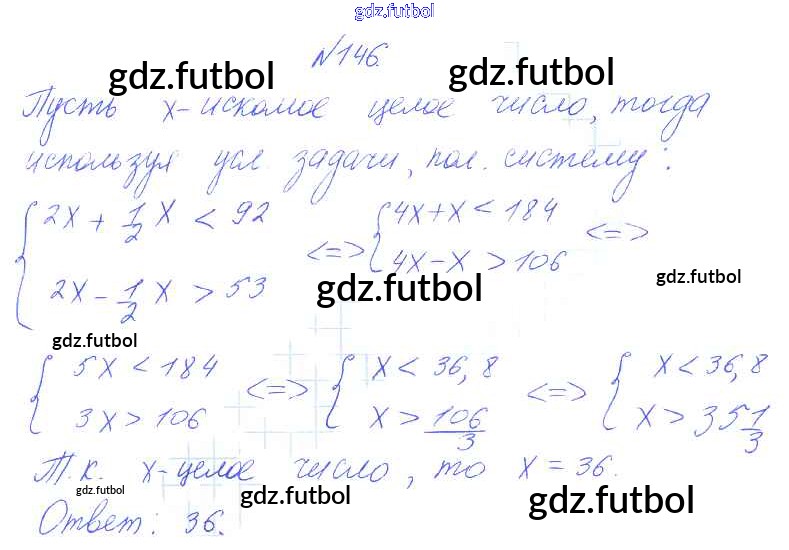 gdz.futbol
N146.
gdz.futbol gdz.futbol
Пусть x-искомое целое число, тогда
используя усл. задачи, пол. систему:
{ 2x + 1/2 x < 92 { 4x+x < 184
<=> <=>
{ 2x - 1/2 x > 53 { 4x-x > 106
gdz.futbol gdz.futbol
gdz.futbol
{ 5x < 184 { x < 36,8 { x < 36,8
<=> <=>
{ 3x > 106 { x > 106/3 { x > 35 1/3
Т.к. x-целое число, то x = 36.
gdz.futbol gdz.futbol gdz.futbol
Ответ: 36.